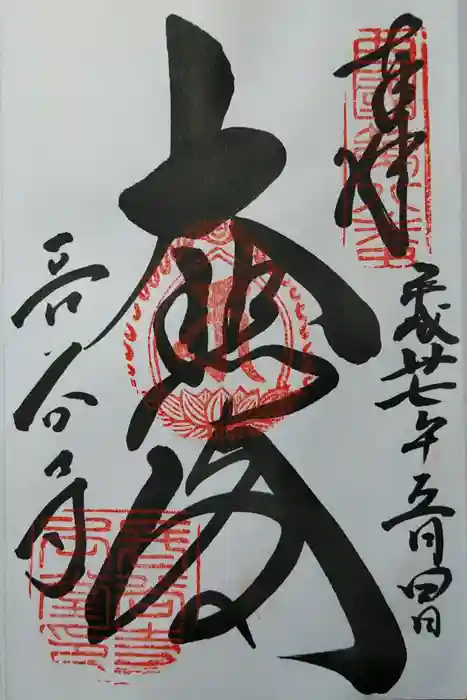 奉拝
平成廿七年五月四日
大悲閣
長谷寺